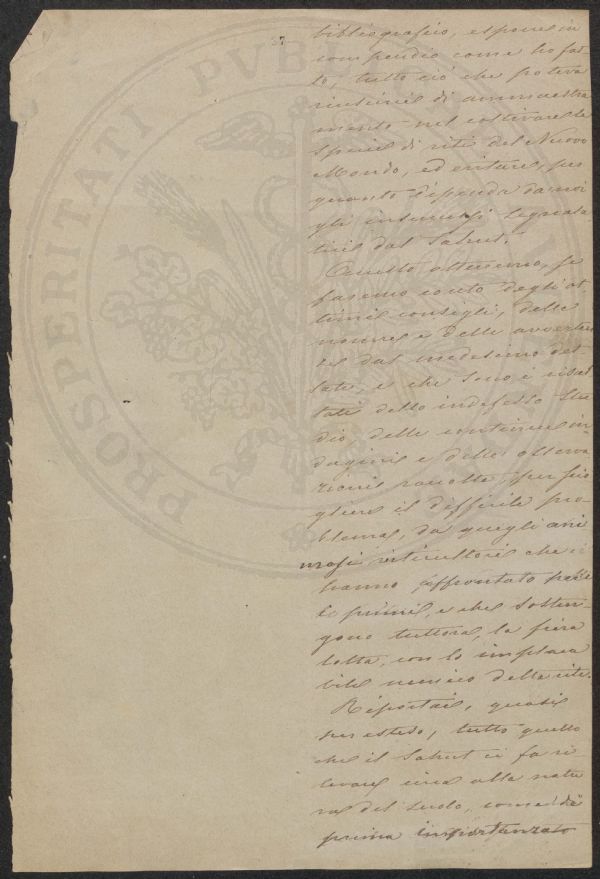 bibliografico, esporre in
compendio come ho fat-
to, tutto ciò che poteva
riuscire di ammaestra
mento nel coltivare le
specie di viti del Nuovo
Mondo, ed evitare, per
quanto dipenda da noi
gli insuccessi segnala
tici dal Sahut.
Questo otterremo, se
faremo conto degli ot
timi consigli, delle
norme e delle avverten
ze dal medesimo det
tate, e che sono i risul
tati dello indefesso stu
dio, delle continue in
dagini e delle osserva
zioni raccolte per scio
gliere il difficile pro
blema, da quegli ani
mosi viticultori che
hanno affrontato
i primi, e che sosten-
gono tuttora, la fiera
lotta, con lo implaca
bile nemico della vite.
Riportai, quasi
per esteso, tutto quello
che il Sahut ci fa ri
levare circa alla natu
ra del suolo, come di
prima importanza
PROSPERITATI PVBLICAE